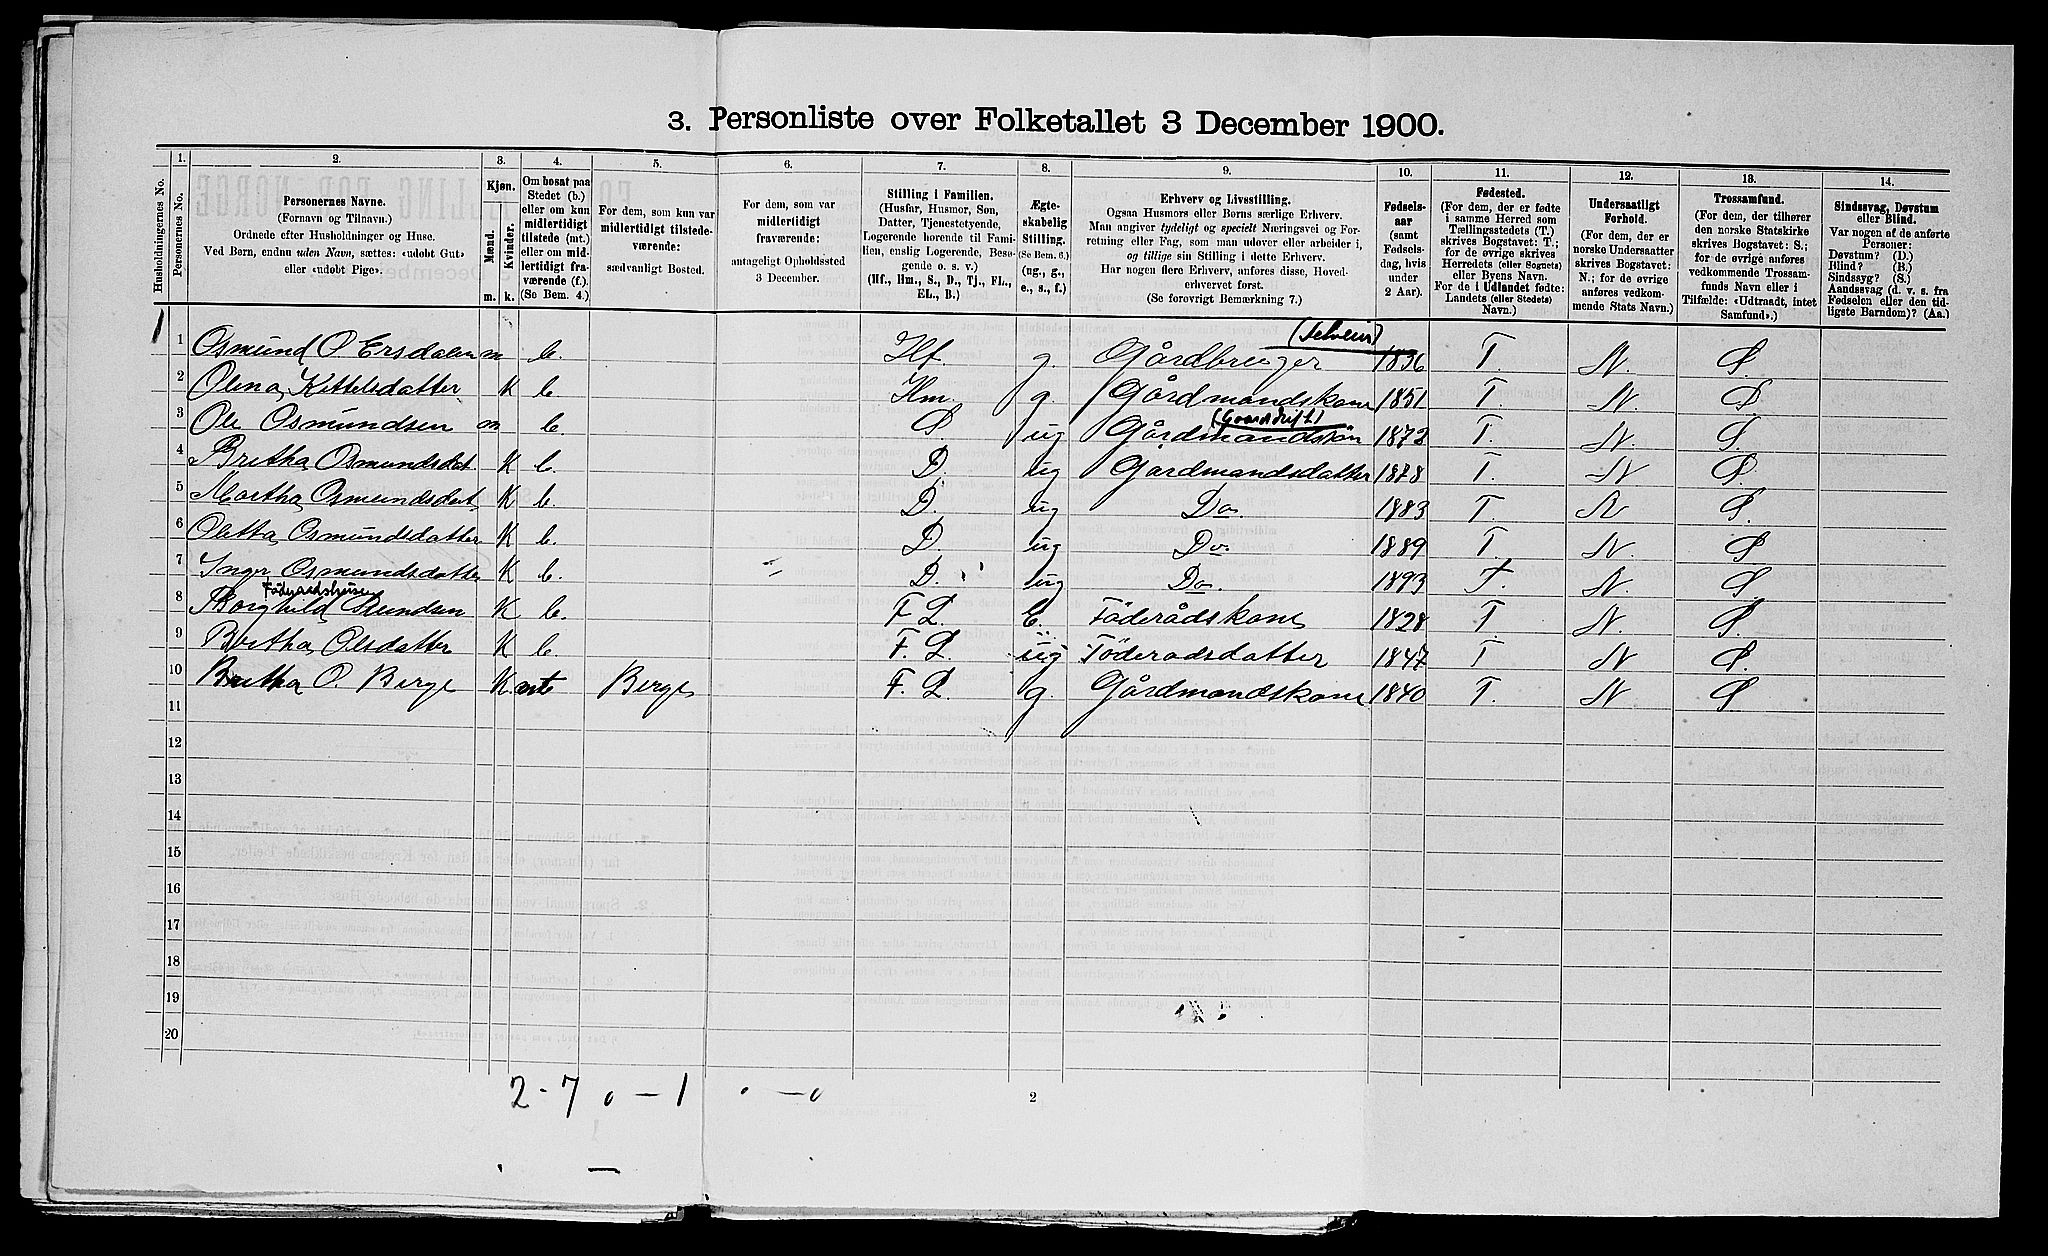 3. Personliste over Folketallet 3 December 1900.
Husholdningernes No.
1.
Personernes No.
2.
Personernes Navne.
(Fornavn og Tilnavn.)
Ordnede efter Husholdninger og Huse.
Ved Børn, endnu uden Navn, sættes: «udobt Gut»
eller «udobt Pige».
3.
Kjøn.
Mænd.
Kvinder.
m. k.
4.
Om bosat paa
Stedet (b.)
eller om kun
midlertidigt
tilstede (mt.)
eller om mid-
lertidigt fra-
værende (f.).
(Se Bem. 4.)
5.
For dem, som kun var
midlertidigt tilstede-
værende:
sædvanligt Bosted.
6.
For dem, som var
midlertidigt
fraværende:
antageligt Opholdssted
3 December.
7.
Stilling i Familien.
(Husfar, Husmor, Søn,
Datter, Tjenestetyende,
Logerende hørende til Fami-
lien, enslig Logerende, Besø-
gende o. s. v.)
(Hf., Hm., S., D., Tj., FL.,
EL., B.)
8.
Ægte-
skabelig
Stilling.
(Se Bem. 6.)
(ug., g.,
e., s., f.)
9.
Erhverv og Livsstilling.
Ogsaa Husmors eller Børns særlige Erhverv.
Man angiver tydeligt og specielt Næringsvei og For-
retning eller Fag, som man udøver eller arbeider i,
og tillige sin Stilling i dette Erhverv.
Har nogen flere Erhverv, anføres disse, Hoved-
erhvervet først.
(Se forøvrigt Bemærkning 7.)
10.
Fødsels-
aar
(samt
Fødsels-
dag, hvis
under
2 Aar).
11.
Fødested.
(For dem, der er fødte
i samme Herred som
Tællingsstedets (T.)
skrives Bogstavet: T.;
for de øvrige skrives
Herredets (eller Sognets)
eller Byens Navn.
For de i Udlandet fødte:
Landets (eller Stedets)
Navn.)
12.
Undersaatligt
Forhold.
(For dem, der er
norske Undersaatter
skrives Bogstavet:
N.; for de øvrige
anføres vedkom-
mende Stats Navn.)
13.
Trossamfund.
(For dem, der tilhører
den norske Statskirke
skrives Bogstavet: S.;
for de øvrige anføres
vedkommende Trossam-
funds Navn eller i
Tilfælde: «Udtraadt, intet
Samfund».)
14.
Sindssvag, Døvstum
eller Blind.
Var nogen af de anførte
Personer:
Døvstum? (D.)
Blind? (B.)
Sindssyg? (S.)
Aandssvag (d. v. s. fra
Fødselen eller den tid-
ligste Barndom)? (Aa.)
(Selveier)
1 1 Osmund O Ersdalen m b. Hf. g. Gårdbruger 1836 T. N. S.
2 Olena Kittelsdatter K b. Hm. g. Gårdmandskone 1851 T. N. S
(Gaardsdrift)
3 Ole Osmundsen m b. S ug Gårdmandssön 1872 T. N. S.
4 Bretha Osmundsdat K b. D. ug Gårdmandsdatter 1878 T. N S.
5 Martha Osmundsdat K b. D. ug Do 1883 T N S.
6 Oletta Osmundsdatter K b. D. ug Do. 1889 T. N. S
7 Inger Osmundsdatter K b. D. ug Do. 1893 T. N. S.
Föderaadshuset
8 Borghild Reiersdatter K b. F L. E. Föderådskone 1828 T. N. S.
9 Bertha Olsdatter K b. F. L. ug Föderadsdatter 1847 T N S.
10 Bretha O. Berge K mt Berge F. L. g. Gårdmandskone 1840 T. N S.
11
12
13
14
15
16
17
18
19
20
2-7 0-1 0-0
2